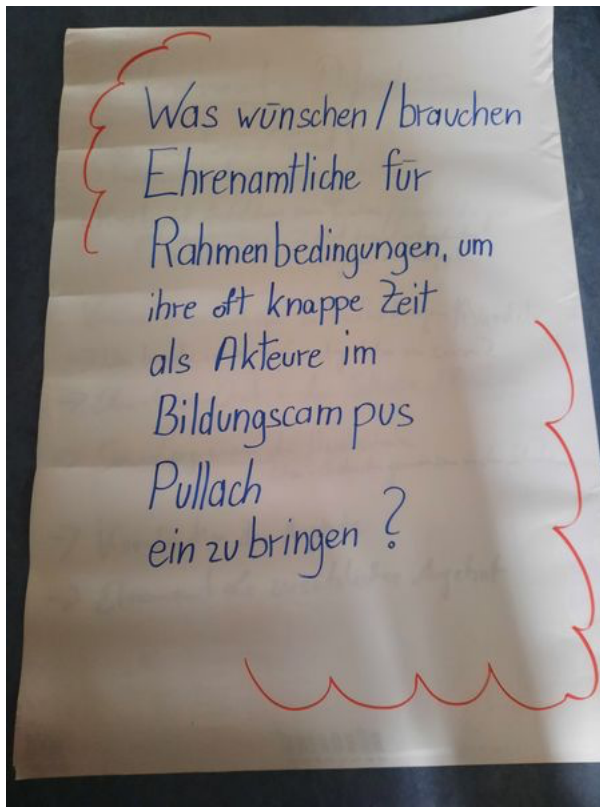 Was wünschen/brauchen
Ehrenamtliche für
Rahmenbedingungen, um
ihre oft knappe Zeit
als Akteure im
Bildungscampus
Pullach
ein zu bringen?